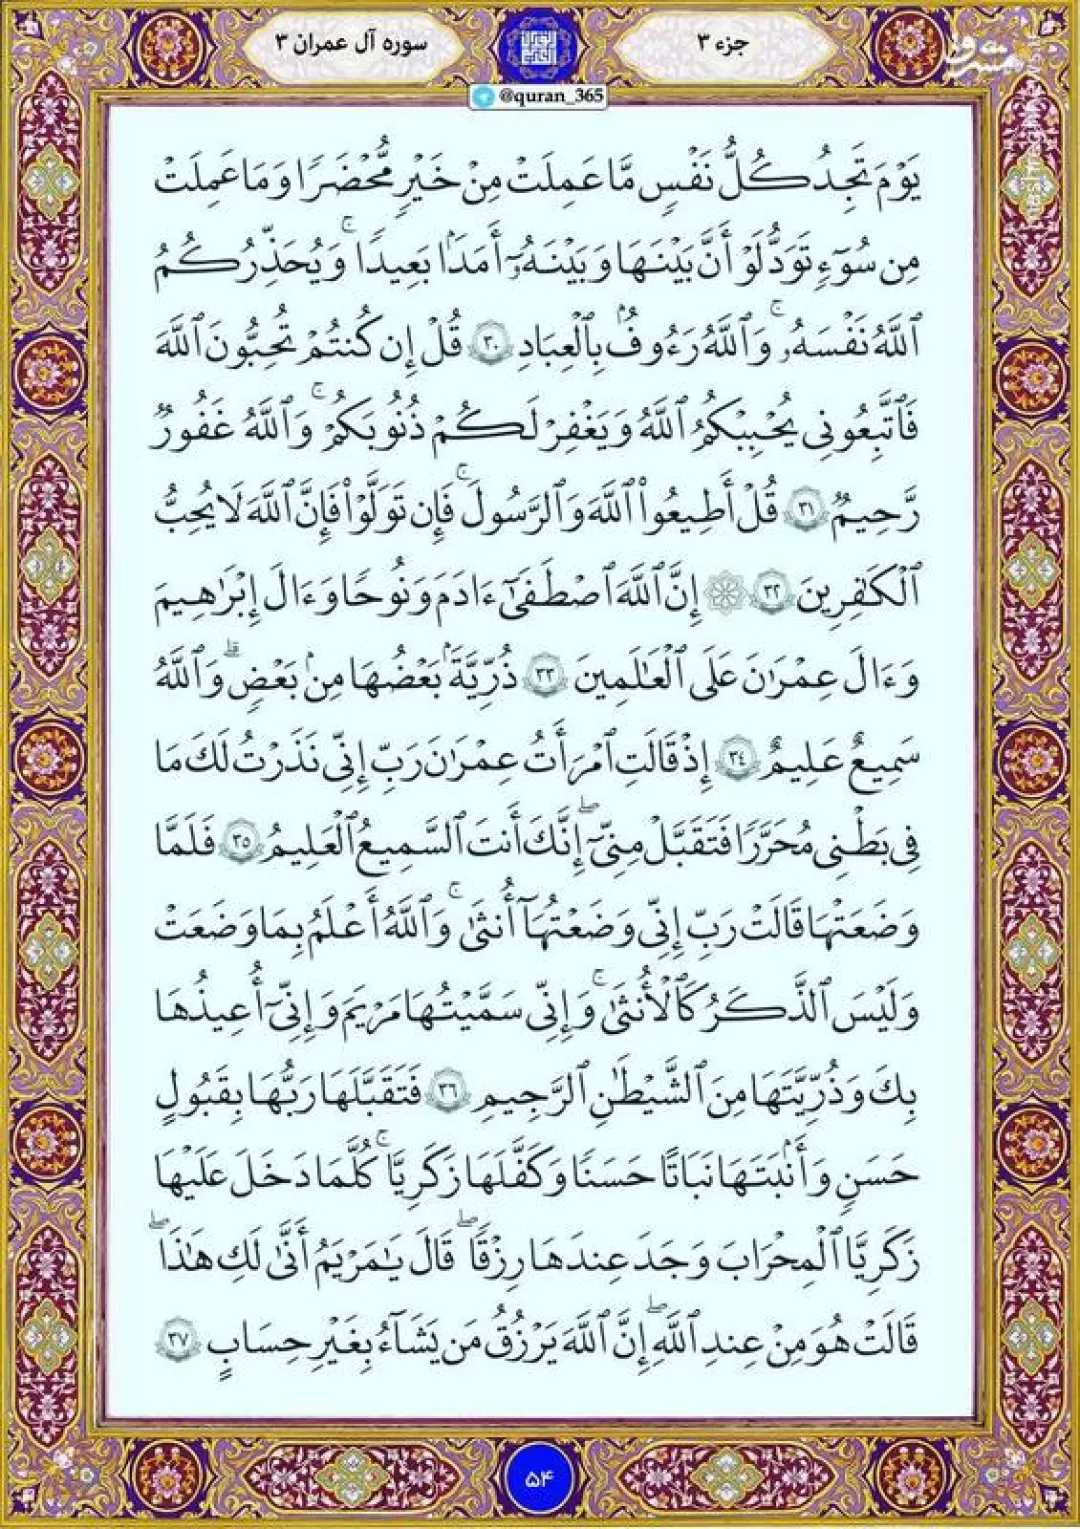 جزء ۳
سوره آل عمران ۳
@quran_365
يَوْمَ تَجِدُ كُلُّ نَفْسٍ مَّا عَمِلَتْ مِنْ خَيْرٍ مُّحْضَرًا وَمَا عَمِلَتْ
مِن سُوٓءٍ تَوَدُّ لَوْ أَنَّ بَيْنَهَا وَبَيْنَهُۥٓ أَمَدَۢا بَعِيدًا ۚ وَيُحَذِّرُكُمُ
ٱللَّهُ نَفْسَهُۥ ۚ وَٱللَّهُ رَءُوفُۢ بِٱلْعِبَادِ ۝٣٠ قُلْ إِن كُنتُمْ تُحِبُّونَ ٱللَّهَ
فَٱتَّبِعُونِى يُحْبِبْكُمُ ٱللَّهُ وَيَغْفِرْ لَكُمْ ذُنُوبَكُمْ ۚ وَٱللَّهُ غَفُورٌ
رَّحِيمٌ ۝٣١ قُلْ أَطِيعُوا۟ ٱللَّهَ وَٱلرَّسُولَ ۚ فَإِن تَوَلَّوْا۟ فَإِنَّ ٱللَّهَ لَا يُحِبُّ
ٱلْكَٰفِرِينَ ۝٣٢ ۞ إِنَّ ٱللَّهَ ٱصْطَفَىٰٓ ءَادَمَ وَنُوحًا وَءَالَ إِبْرَٰهِيمَ
وَءَالَ عِمْرَٰنَ عَلَى ٱلْعَٰلَمِينَ ۝٣٣ ذُرِّيَّةَۢ بَعْضُهَا مِنۢ بَعْضٍ ۗ وَٱللَّهُ
سَمِيعٌ عَلِيمٌ ۝٣٤ إِذْ قَالَتِ ٱمْرَأَتُ عِمْرَٰنَ رَبِّ إِنِّى نَذَرْتُ لَكَ مَا
فِى بَطْنِى مُحَرَّرًا فَتَقَبَّلْ مِنِّىٓ ۖ إِنَّكَ أَنتَ ٱلسَّمِيعُ ٱلْعَلِيمُ ۝٣٥ فَلَمَّا
وَضَعَتْهَا قَالَتْ رَبِّ إِنِّى وَضَعْتُهَآ أُنثَىٰ ۚ وَٱللَّهُ أَعْلَمُ بِمَا وَضَعَتْ
وَلَيْسَ ٱلذَّكَرُ كَٱلْأُنثَىٰ ۚ وَإِنِّى سَمَّيْتُهَا مَرْيَمَ وَإِنِّىٓ أُعِيذُهَا
بِكَ وَذُرِّيَّتَهَا مِنَ ٱلشَّيْطَٰنِ ٱلرَّجِيمِ ۝٣٦ فَتَقَبَّلَهَا رَبُّهَا بِقَبُولٍ
حَسَنٍ وَأَنۢبَتَهَا نَبَاتًا حَسَنًا وَكَفَّلَهَا زَكَرِيَّا ۚ كُلَّمَا دَخَلَ عَلَيْهَا
زَكَرِيَّا ٱلْمِحْرَابَ وَجَدَ عِندَهَا رِزْقًا ۖ قَالَ يَٰمَرْيَمُ أَنَّىٰ لَكِ هَٰذَا ۖ
قَالَتْ هُوَ مِنْ عِندِ ٱللَّهِ ۖ إِنَّ ٱللَّهَ يَرْزُقُ مَن يَشَآءُ بِغَيْرِ حِسَابٍ ۝٣٧
۵۴